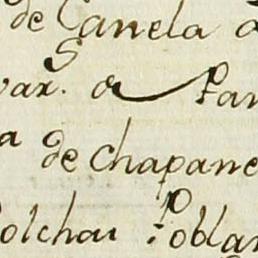 de Canela
var.s a Pan
a de chapane
Colchai Poblan